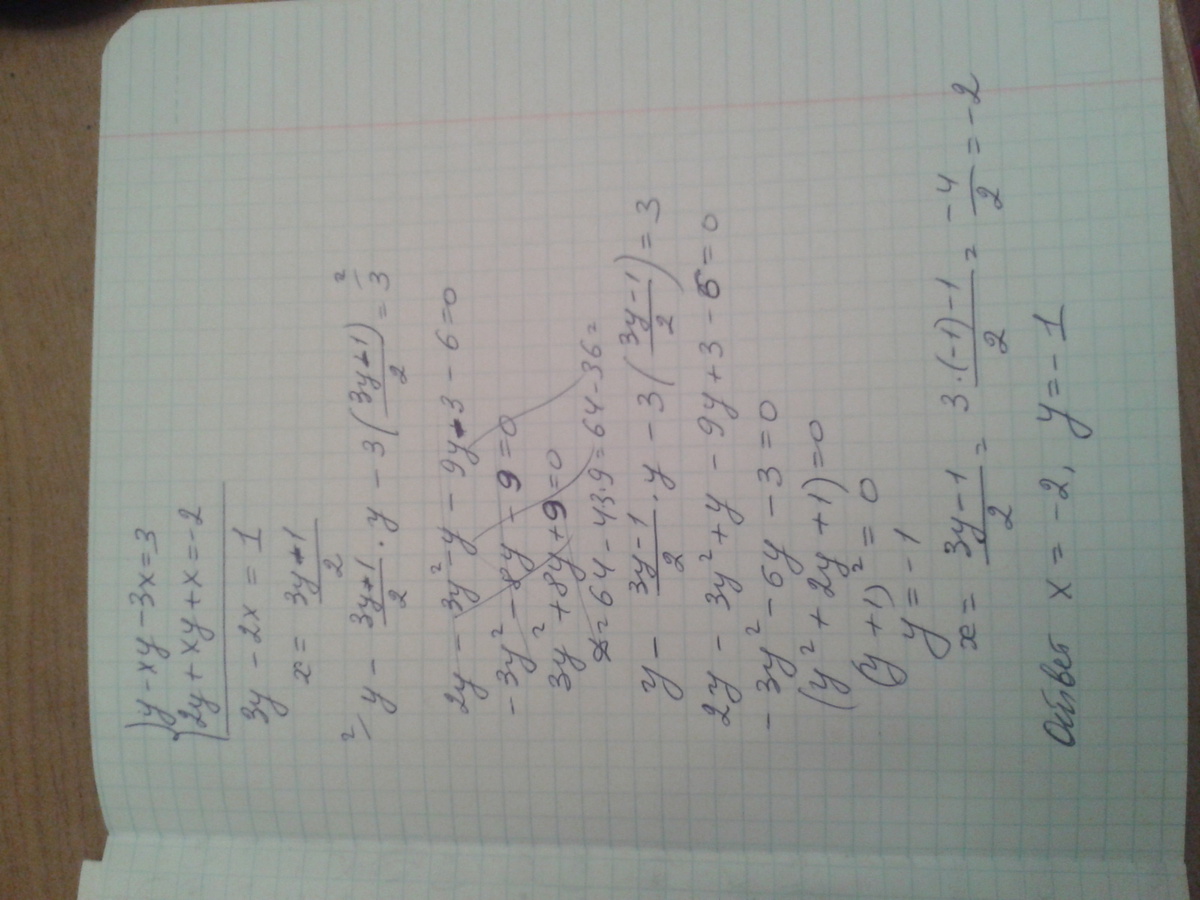 { y - xy - 3x = 3
{ 2y + xy + x = -2
3y - 2x = 1
x = (3y-1)/2
2/ y - (3y-1)/2 · y - 3((3y-1)/2) = 3 /2
2y - 3y² - y - 9y - 3 - 6 = 0
-3y² - 8y - 9 = 0
3y² + 8y + 9 = 0
D = 64 - 4·3·9 = 64 - 36 =
y - (3y-1)/2 · y - 3((3y-1)/2) = 3
2y - 3y² + y - 9y + 3 - 6 = 0
-3y² - 6y - 3 = 0
(y² + 2y + 1) = 0
(y + 1)² = 0
y = -1
x = (3y-1)/2 = (3·(-1)-1)/2 = -4/2 = -2
Ответ x = -2, y = -1